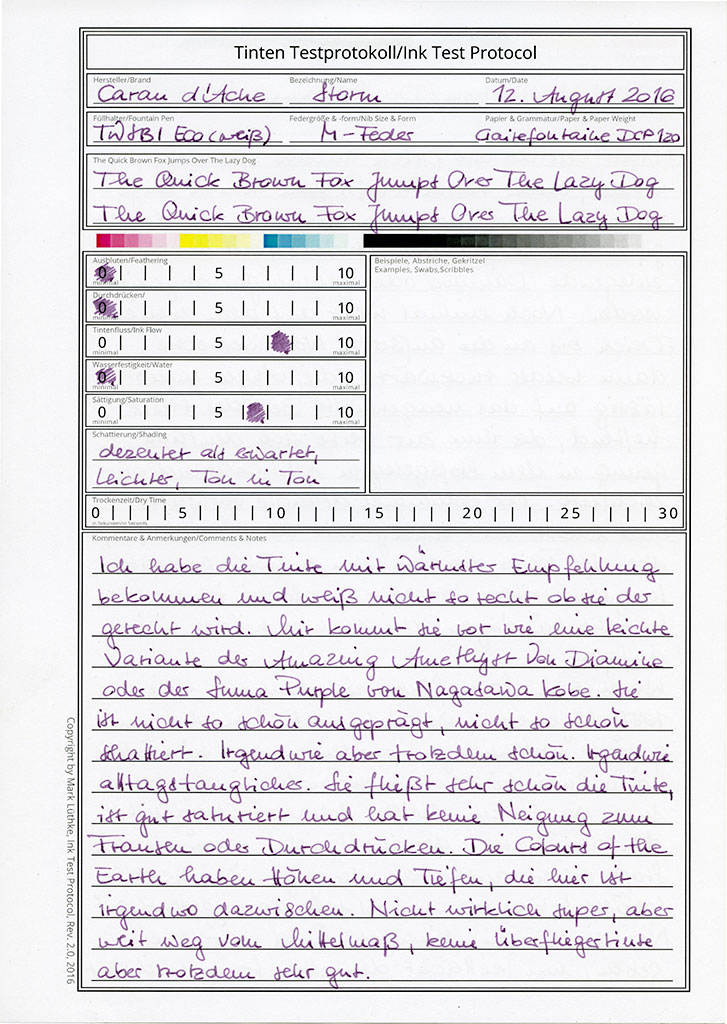 Tinten Testprotokoll/Ink Test Protocol
Hersteller/Brand Bezeichnung/Name Datum/Date
Caran d'Ache Storm 12. August 2016
Füllhalter/Fountain Pen Federgröße & -form/Nib Size & Form Papier & Grammatur/Paper & Paper Weight
TWSBI Eco (weiß) M-Feder Clairefontaine DCP 120
The Quick Brown Fox Jumps Over The Lazy Dog
The Quick Brown Fox Jumps Over The Lazy Dog
The Quick Brown Fox Jumps Over The Lazy Dog
Ausbluten/Feathering
0 5 10
minimal maximal
Durchdrücken/
0 5 10
minimal maximal
Tintenfluss/Ink Flow
0 5 10
minimal maximal
Wasserfestigkeit/Water
0 5 10
minimal maximal
Sättigung/Saturation
0 5 10
minimal maximal
Schattierung/Shading
dezenter als erwartet,
leichter, Ton in Ton
Beispiele, Abstriche, Gekritzel
Examples, Swabs,Scribbles
Trockenzeit/Dry Time
0 5 10 15 20 25 30
in Sekunden/in Seconds
Kommentare & Anmerkungen/Comments & Notes
Ich habe die Tinte mit wärmster Empfehlung
bekommen und weiß nicht so recht ob sie der
gerecht wird. Mir kommt sie vor wie eine leichte
Variante der Amazing Amethyst von Diamine
oder der Suma Purple von Nagasawa Kobe. Sie
ist nicht so schön ausgeprägt, nicht so schön
schattiert. Irgendwie aber trotzdem schön. Irgendwie
alltagstauglicher. Sie fließt sehr schön die Tinte,
ist gut saturiert und hat keine Neigung zum
Fransen oder Durchdrücken. Die Colours of the
Earth haben Höhen und Tiefen, die hier ist
irgendwo dazwischen. Nicht wirklich super, aber
weit weg vom Mittelmaß, keine Überfliegertinte
aber trotzdem sehr gut.
Copyright by Mark Lüthke, Ink Test Protocol, Rev. 2.0, 2016